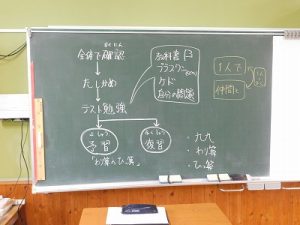 かくにん
全体で確認
たしかめ
テスト勉強
よしゅう
予習
「わり算のひっ算」
ふくしゅう
復習
教科書
プラスワン
ケド
自分の問題
1人で
仲間と
・九九
・わり算
・ひっ算